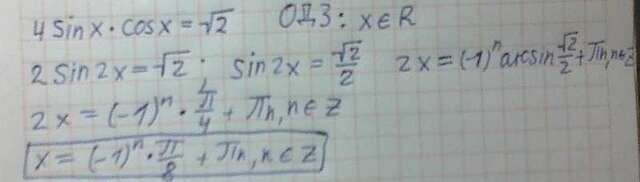 4 sin x · cos x = √2 ОДЗ: x ∈ R
2 sin 2x = √2; sin 2x = √2/2 2x = (-1)ⁿ arcsin √2/2 + πn, n ∈ Z
2x = (-1)ⁿ · π/4 + πn, n ∈ Z
x = (-1)ⁿ · π/8 + πn, n ∈ Z